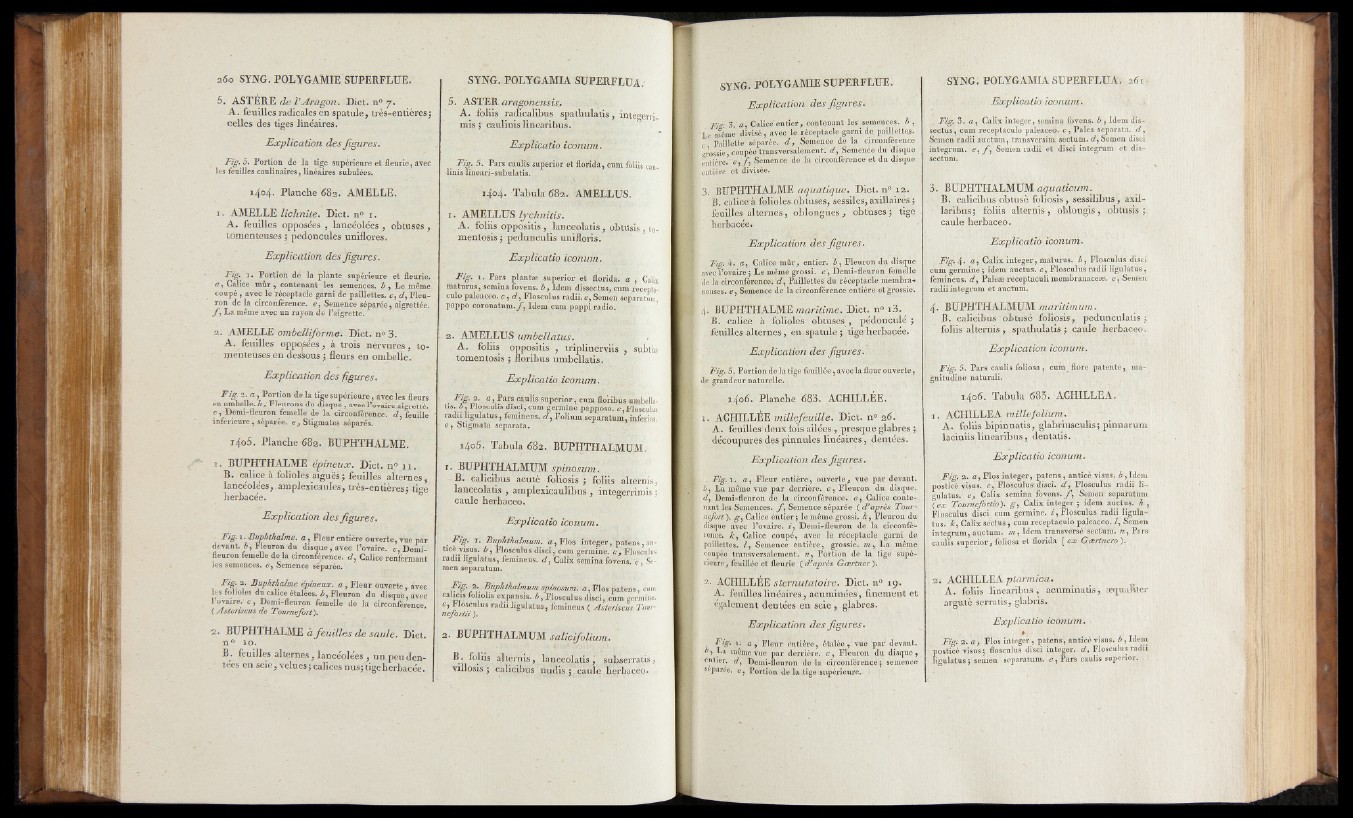 260 SYNG. POLYGAMIE SUPERFLUE.
5. ASTÈRE de l'Aragon. Dict. n° 7.
A. feuilles radicales en spatule, très-entières;
celles des tiges linéaires.
Explication des figures.
Fig. 5. Portion de la tige supérieure et fleurie, avec
les feuilles caulinaires, linéaires subulées.
1404. Planche 682. AMELLE.
1. AMELLE lichnite. Dict. n° 1.
A. feuilles opposées, lancéolées, obtuses,
tomenteuses; pédoncules uniflores.
Explication des figures.
Fig. 1. Portion de la plante supérieure et fleurie.
a, Calice mûr, contenant les semences. b, Le même
coupé, avec le réceptacle garni de paillettes. c, d, Fleu-
ron de la circonférence. e, Semence séparée, aigrettée.
f, La même avec un rayon de l'aigrette.
2. AMELLE ombelliforme. Dict. n° 3.
A. feuilles opposées, à trois nervures, to-
menteuses en dessous; fleurs en ombelle.
Explication des figures.
Fig. 2. a, Portion de la tige supérieure, avec les fleurs
en ombelle. b, Fleurons du disque, avec l'ovaire aigretté.
c, Demi-fleuron femelle de la circonférence. d, feuille
inférieure, séparée. e, Stigmates séparés.
1405. Planche 682. BUPHTHALME.
1. BUPHTHALME épineux. Dict. n° 11.
B. calice à folioles aiguës; feuilles alternes,
lancéolées, amplexicaules, très-entières; tige
herbacée.
Explication des figures.
Fig. 1. Buphthalme. a, Fleur entière ouverte, vue par
devant. b, Fleuron du disque, avec l'ovaire. c, Demi-
fleuron femelle de la circonférence. d, Calice renfermant
les semences. e, Semence séparée.
Fig. 2. Buphthalme épineux. a, Fleur ouverte, avec
les folioles du calice étalées. b, Fleuron du disque, avec
l'ovaire. c, Demi-fleuron femelle de la circonférence.
(Asteriscus de Tournefort).
2. BUPHTHALME à feuilles de saule. Dict.
n° 10.
B. feuilles alternes, lancéolées, un peu den-
tées en scie, velues; calices nus; tige herbacée.
SYNG. POLYGAMIA SUPERFLUA.
5. ASTER aragonensis.
A. foliis radicalibus spathulatis, integerri-
mis; caulinis linearibus.
Explicatio iconum.
Fig. 5. Pars caulis superior et florida, cum foliis cau-
linis lineari-subulatis.
1404. Tabula 682. AMELLUS.
1. AMELLUS lychnitis.
A. foliis oppositis, lanceolatis, obtusis, to-
mentosis; pedunculis unifloris.
Explicatio iconum.
Fig. 1. Pars plantæ superior et florida. a, Calix
maturus, semina fovens. b, Idem dissectus, cum recepta-
culo paleaceo. c, d, Flosculus radii. e, Semen separatum,
pappo coronatum. f, Idem cum pappi radio.
2. AMELLUS umbellatus.
A. foliis oppositis, triplinerviis, subtus
tomentosis; floribus umbellatis.
Explicatio iconum.
Fig. 2. a, Pars caulis superior, cum floribus umbella-
tis. b, Flosculus disci, cum germine papposo. c, Flosculus
radii ligulatus, femineus. d, Folium separatum, inferius.
e, Stigmata separata.
1405. Tabula 682. BUPHTHALMUM.
1. BUPHTHALMUM spinosum.
B. calicibus acutè foliosis; foliis alternis,
lanceolatis, amplexicaulibus, integerrimis;
caule herbaceo.
Explicatio iconum.
Fig. 1. Buphthalmum. a, Flos integer, patens, an-
ticè visus. b, Flosculus disci, cum germine. c, Flosculus
radii ligulatus, femineus. d, Calix semina fovens. e, Se-
men separatum.
Fig. 2. Buphthalmum spinosum. a, Flos patens, cum
calicis foliolis expansis. b, Flosculus disci, cum germine.
c, Flosculus radii ligulatus, femineus (Asteriscus Tour-
nefortii).
2. BUPHTHALMUM salicifolium.
B. foliis alternis, lanceolatis, subserratis,
villosis; calicibus nudis; caule herbaceo.
SYNG. POLYGAMIE SUPERFLUE.
Explication des figures.
Fig. 3. a, Calice entier, contenant les semences. b,
Le même divisé, avec le réceptacle garni de paillettes.
c, Paillette séparée. d, Semence de la circonférence
grossie, coupée transversalement. d, Semence du disque
entière. e, f, Semence de la circonférence et du disque
entière et divisée.
3. BUPHTHALME aquatique. Dict. n° 12.
B. calice à folioles obtuses, sessiles, axillaires;
feuilles alternes, oblongues, obtuses; tige
herbacée.
Explication des figures.
Fig. 4. a, Calice mûr, entier. b, Fleuron du disque
avec l'ovaire; Le même grossi. c, Demi-fleuron femelle
de la circonférence. d, Paillettes du réceptacle membra-
neuses. e, Semence de la circonférence entière et grossie.
4. BUPHTHALME maritime. Dict. n° 13.
B. calice à folioles obtuses, pédonculé;
feuilles alternes, en spatule; tige herbacée.
Explication des figures.
Fig. 5. Portion de la tige feuillée, avec la fleur ouverte,
de grandeur naturelle.
1406. Planche 683. ACHILLÉE.
1. ACHILLÉE millefeuille. Dict. n° 26.
A. feuilles deux fois ailées, presque glabres;
découpures des pinnules linéaires, dentées.
Explication des figures.
Fig. 1. a, Fleur entière, ouverte, vue par devant.
b, La même vue par derrière. c, Fleuron du disque.
d, Demi-fleuron de la circonférence. e, Calice conte-
nant les Semences. f, Semence séparée (d'après Tour-
nefort). g, Calice entier; le même grossi. h, Fleuron du
disque avec l'ovaire. i, Demi-fleuron de la circonfé-
rence. k, Calice coupé, avec le réceptacle garni de
paillettes. l, Semence entière, grossie. m, La même
coupée transversalement. n, Portion de la tige supé-
rieure, feuillée et fleurie (d'après Gærtner).
2. ACHILLÉE sternutatoire. Dict. n° 19.
A. feuilles linéaires, acuminées, finement et
également dentées en scie, glabres.
Explication des figures.
Fig. 2. a, Fleur entière, étalée, vue par devant.
b, La même vue par derrière. c, Fleuron du disque,
entier. d, Demi-fleuron de la circonférence; semence
séparée. e, Portion de la tige supérieure.
SYNG. POLYGAMIA SUPERFLUA. 261
Explicatio iconum.
Fig. 3. a, Calix integer, semina fovens. b, Idem dis-
sectus, cum receptaculo paleaceo. c, Palea separata. d,
Semen radii auctum, transversim sectum. d, Semen disci
integrum. e, f, Semen radii et disci integrum et dis-
sectum.
3. BUPHTHALMUM aquaticum.
B. calicibus obtusè foliosis, sessilibus, axil-
laribus; foliis alternis, oblongis, obtusis;
caule herbaceo.
Explicatio iconum.
Fig. 4. a, Calix integer, maturus. b, Flosculus disci
cum germine; idem auctus. c, Flosculus radii ligulatus,
femineus. d, Paleæ receptaculi membranaceæ. e, Semen
radii integrum et auctum.
4. BUPHTHALMUM maritimum.
B. calicibus obtusè foliosis, pedunculatis;
foliis alternis, spathulatis; caule herbaceo.
Explication iconum.
Fig. 5. Pars caulis foliosa, cum flore patente, ma-
gnitudine naturali.
1406. Tabula 683. ACHILLEA.
1. ACHILLEA millefolium.
A. foliis bipinnatis, glabriusculis; pinnarum
laciniis linearibus, dentatis.
Explicatio iconum.
Fig. 2. a, Flos integer, patens, anticè visus. b, Idem
posticè visus. c, Flosculus disci. d, Flosculus radii li-
gulatus. e, Calix semina fovens. f, Semen separatum
(ex Tournefortio). g, Calix integer; idem auctus. h,
Flosculus disci cum germine. i, Flosculus radii ligula-
tus. k, Calix sectus, cum receptaculo paleaceo. l, Semen
integrum, auctum. m, Idem transversè sectum. n, Pars
caulis superior, foliosa et florida (ex Gærtnero).
2. ACHILLEA ptarmica.
A. foliis linearibus, acuminatis, æqualiter
argutè serratis, glabris.
Explicatio iconum.
Fig. 2. a, Flos integer, patens, anticè visus. b, Idem
posticè visus; flosculus disci integer. d, Flosculus radii
ligulatus; semen separatum. e, Pars caulis superior.